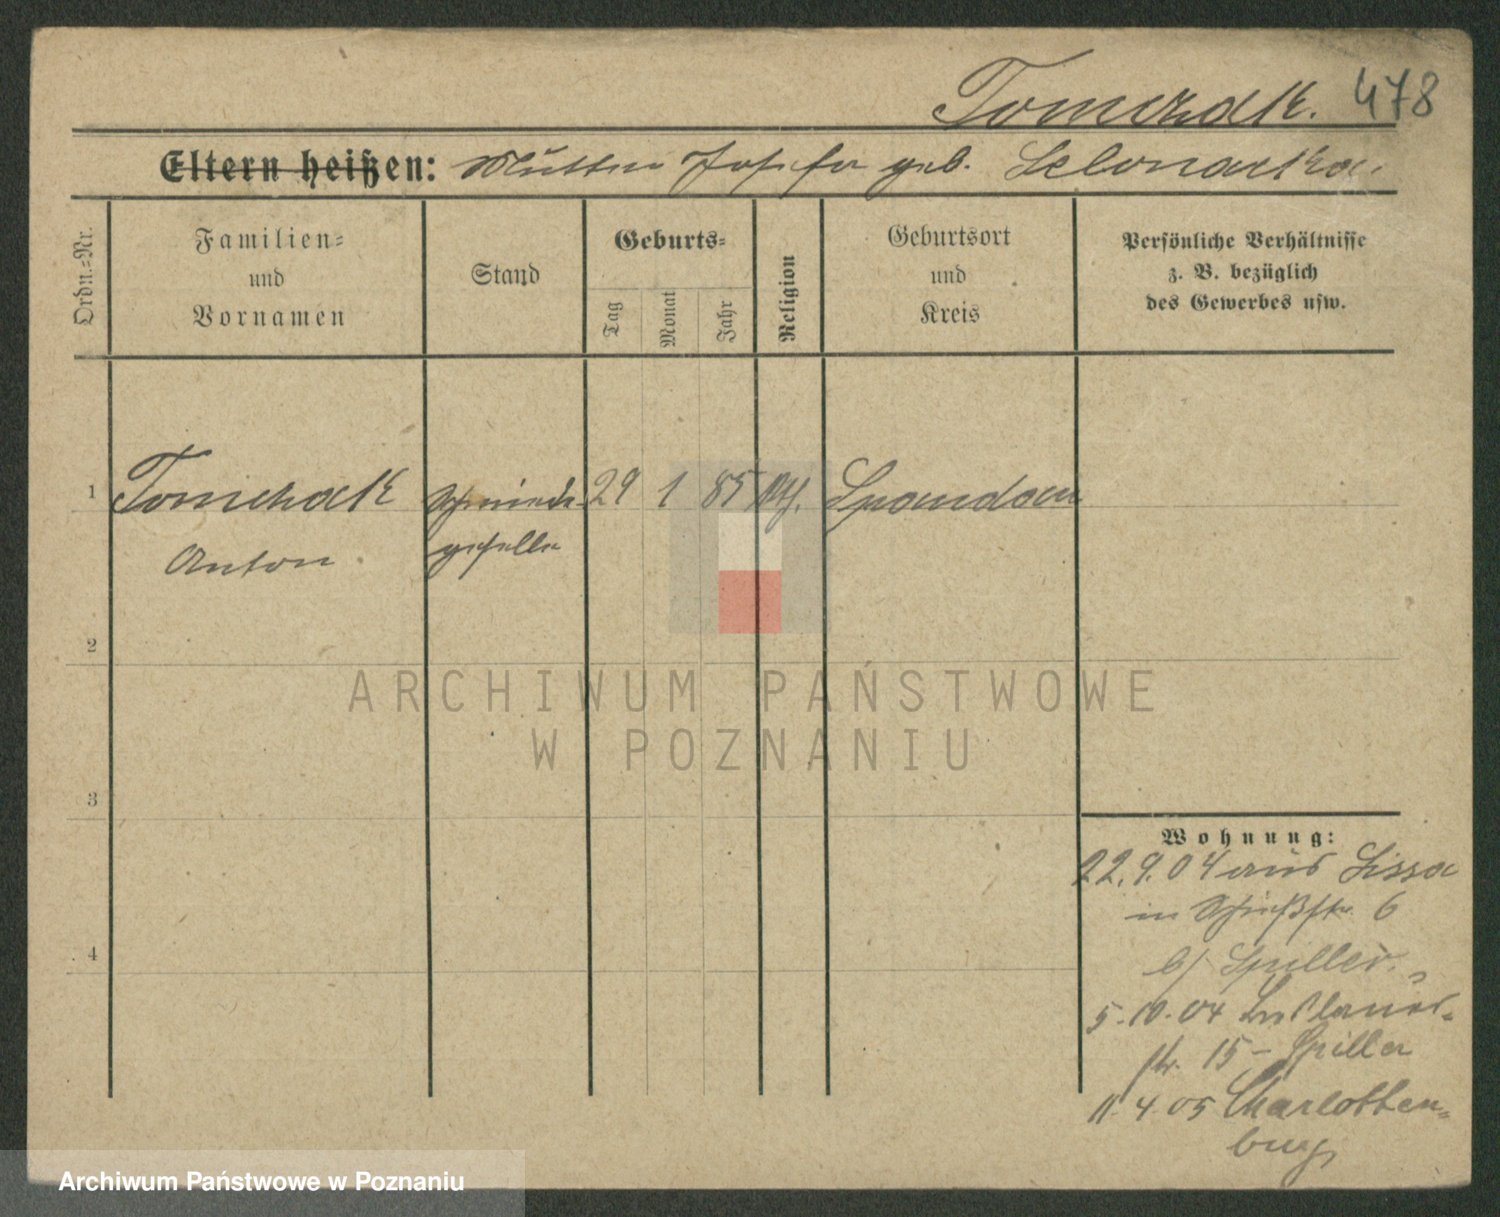 Tomczak. 478
Eltern heißen: Mutter Josefa geb.
Ordn.-Nr.
Familien-
und
Vornamen
Stand
Geburts-
Tag
Monat
Jahr
Religion
Geburtsort
und
Kreis
Persönliche Verhältnisse
z. B. bezüglich
des Gewerbes usw.
1 Tomczak Schmiede- 29 1 85 kth. Spandau
Anton geselle
2
3
4
Wohnung:
22.9.04 aus Lissa
in Schießstr. 6
b/ Spiller.
5.10.04
str. 15 - Spiller
11.4.05 Charlotten-
burg
ARCHIWUM PAŃSTWOWE
W POZNANIU
Archiwum Państwowe w Poznaniu